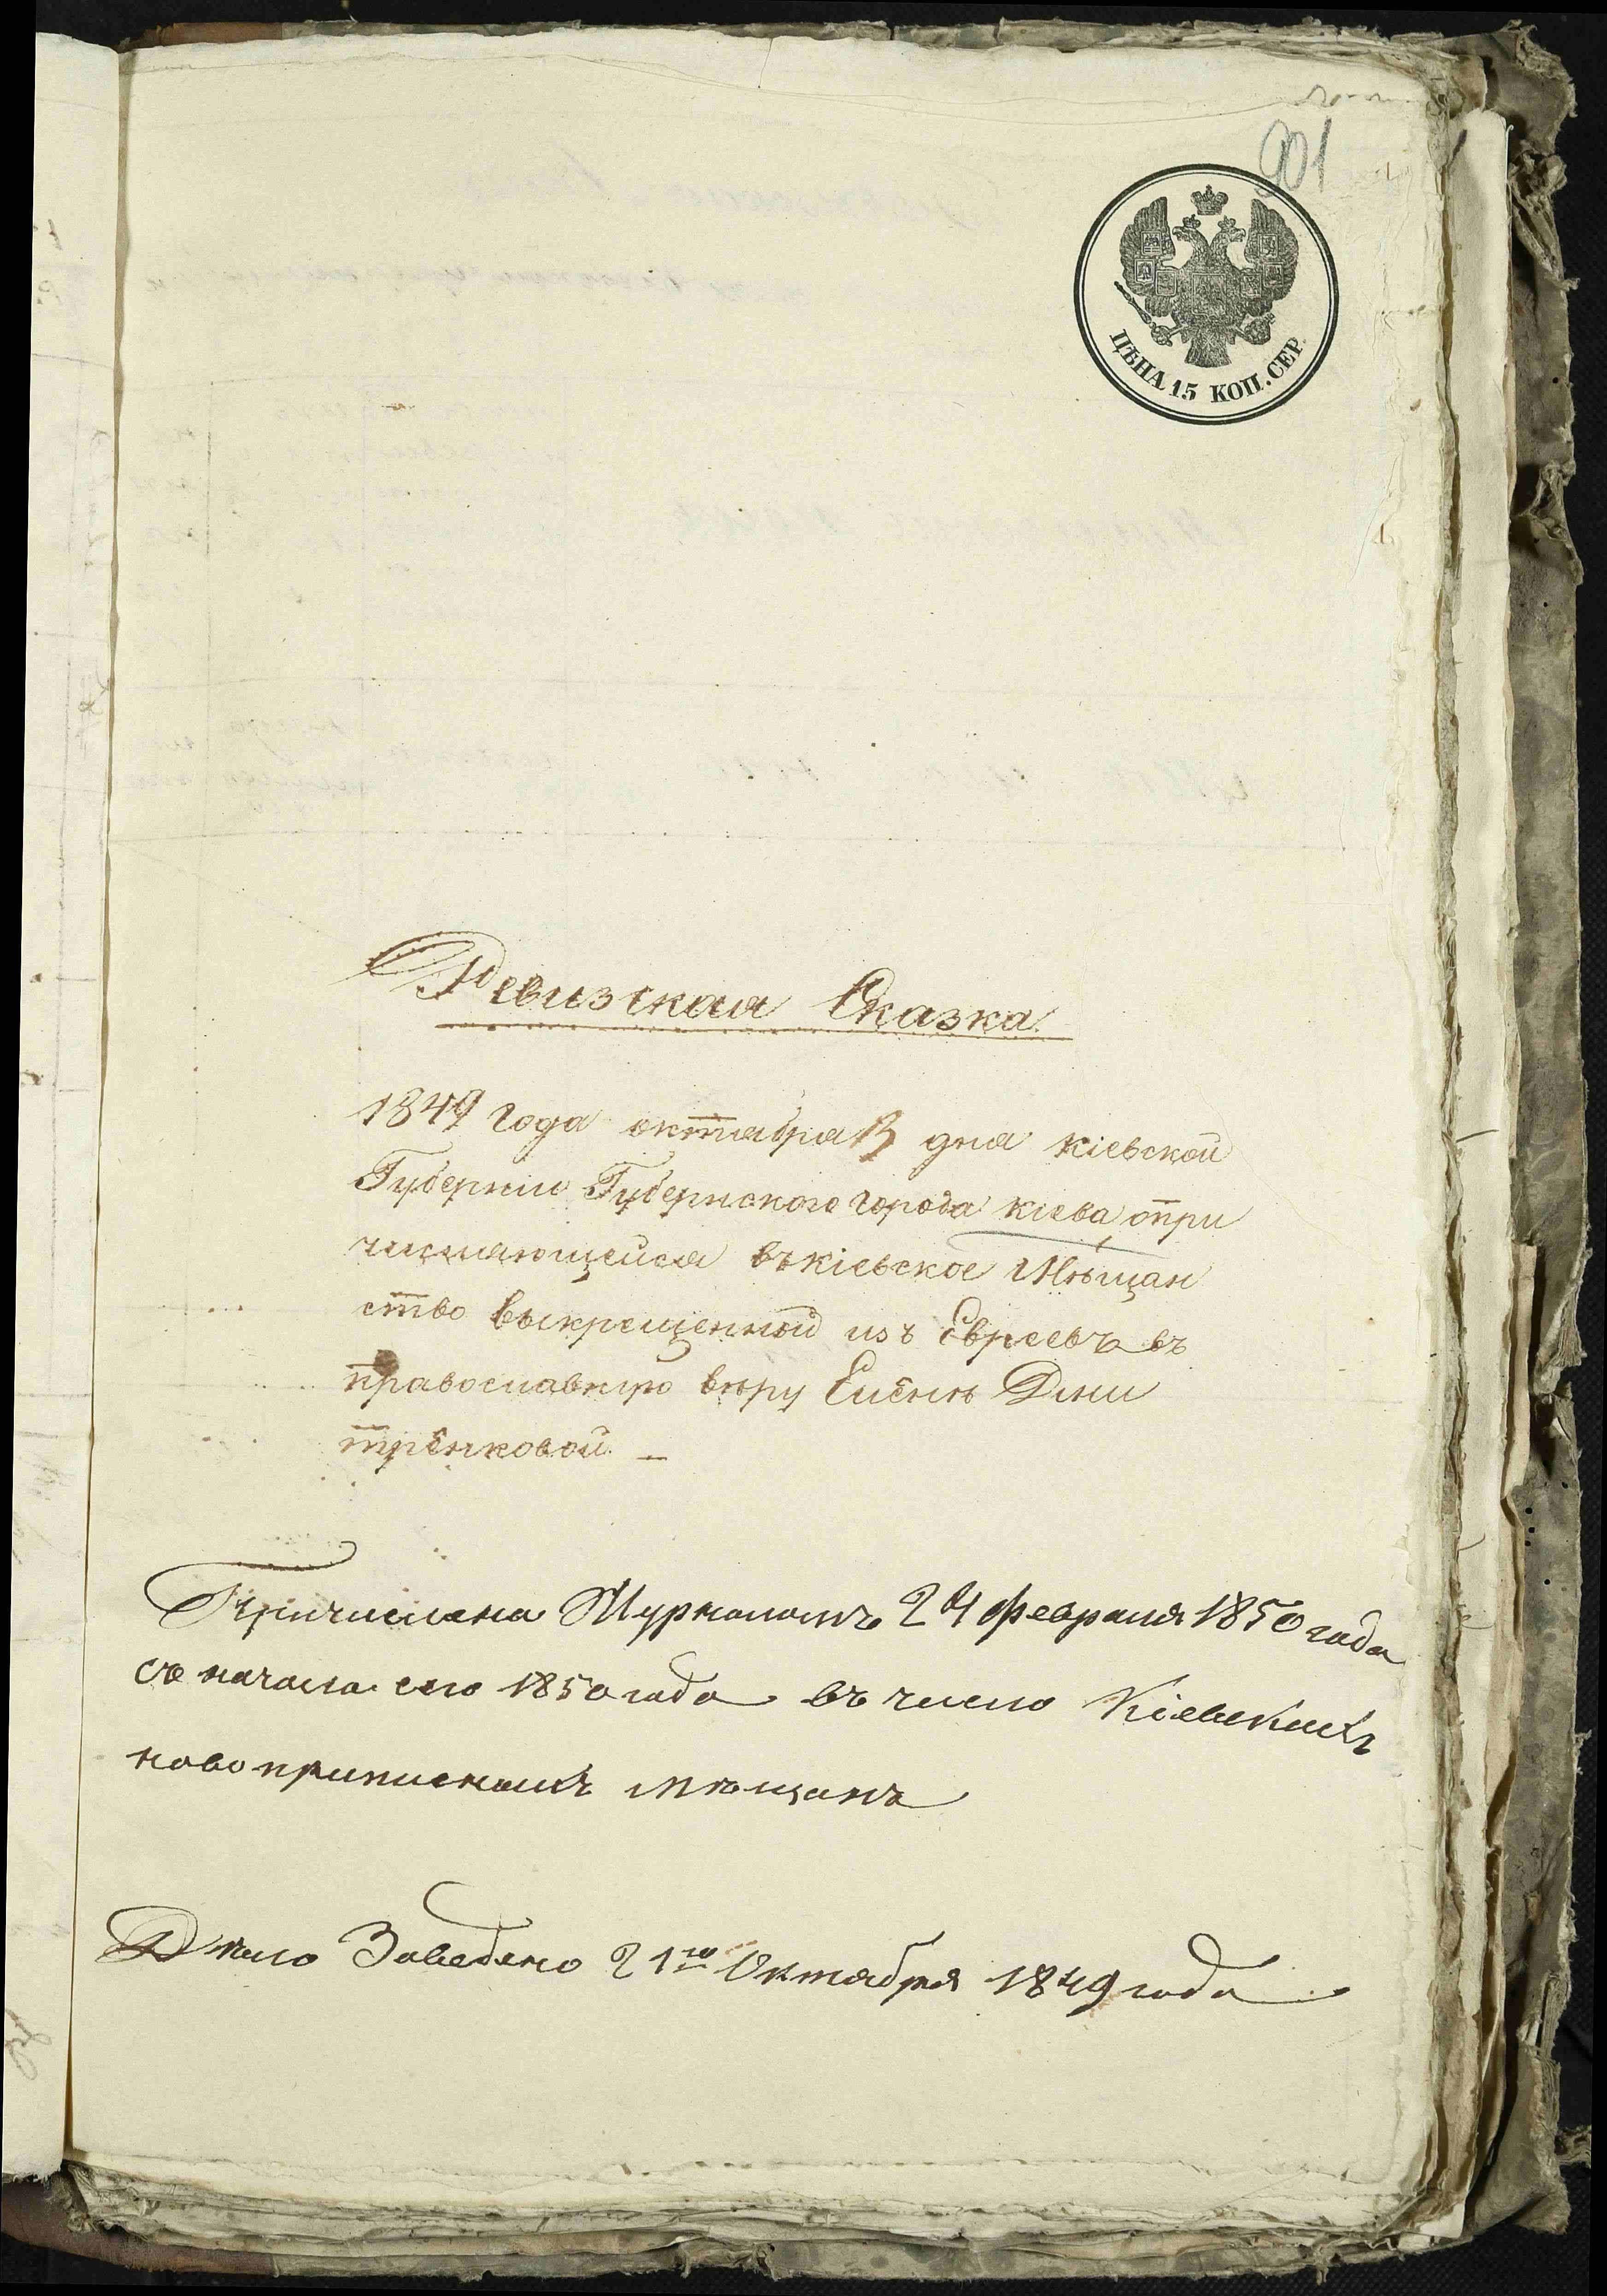 901
ЦѢНА 15 КОП. СЕР.
Ревизская Сказка
1849 года октября 13 дня кіевской
Губерніи Губернскаго города кіева, о при
числяющейся въ кіевское Мѣщан
ство выкрещенной изъ Евреевъ въ
православную вѣру Еленѣ Дми
тренковой. —
Причислена Журналомъ 24 февраля 1850 года
съ начала сего 1850 года въ число Кіевскихъ
новоприписныхъ мѣщанъ
Дѣло Заведено 21го Октября 1849 года